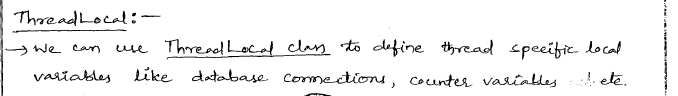 ThreadLocal:-
→ We can use ThreadLocal class to define thread specific local
variables like database connections, counter variables etc.